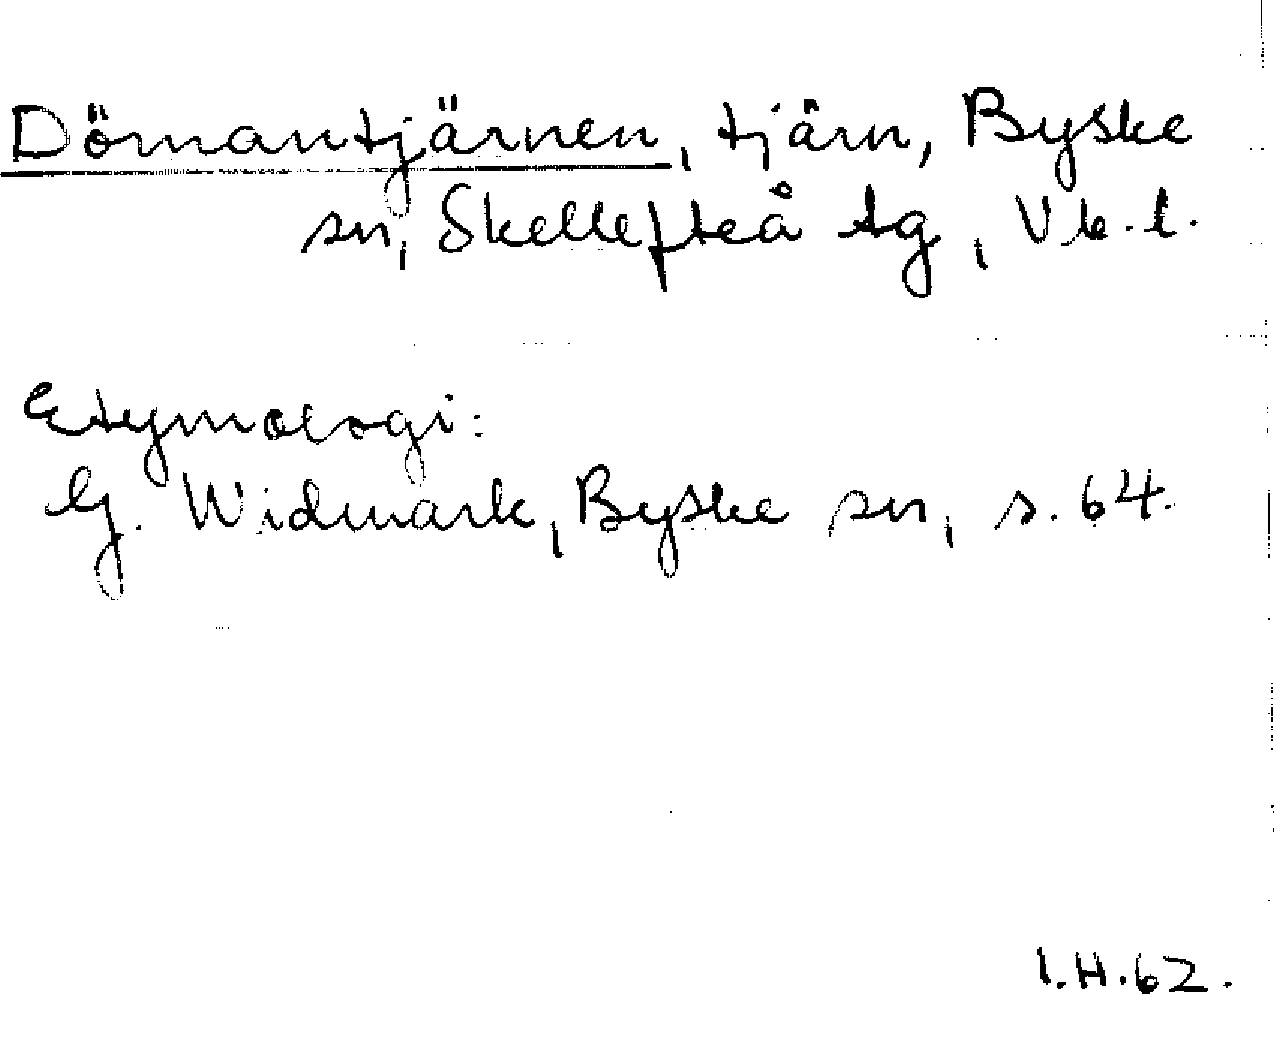 Dömantjärnen, tjärn, Byske
sn, Skellefteå tg, Vb. l.
Etymologi:
G. Widmark, Byske sn, s. 64.
I.H.62.